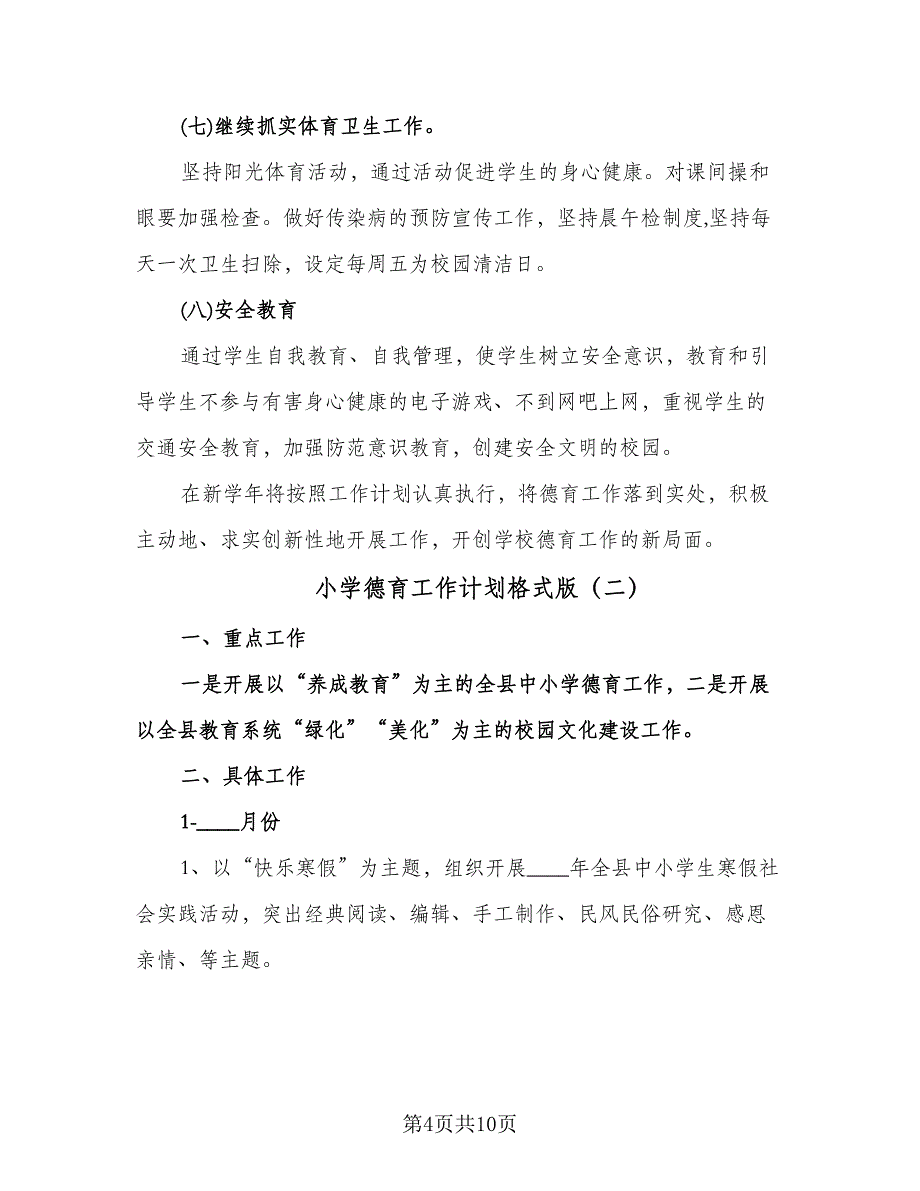 (七)继续抓实体育卫生工作。
坚持阳光体育活动，通过活动促进学生的身心健康。对课间操和
眼要加强检查。做好传染病的预防宣传工作，坚持晨午检制度,坚持每
天一次卫生扫除，设定每周五为校园清洁日。
(八)安全教育
通过学生自我教育、自我管理，使学生树立安全意识，教育和引
导学生不参与有害身心健康的电子游戏、不到网吧上网，重视学生的
交通安全教育，加强防范意识教育，创建安全文明的校园。
在新学年将按照工作计划认真执行，将德育工作落到实处，积极
主动地、求实创新性地开展工作，开创学校德育工作的新局面。
小学德育工作计划格式版（二）
一、重点工作
一是开展以“养成教育”为主的全县中小学德育工作，二是开展
以全县教育系统“绿化”“美化”为主的校园文化建设工作。
二、具体工作
1-____月份
1、以“快乐寒假”为主题，组织开展____年全县中小学生寒假社
会实践活动，突出经典阅读、编辑、手工制作、民风民俗研究、感恩
亲情、等主题。
第4页共10页